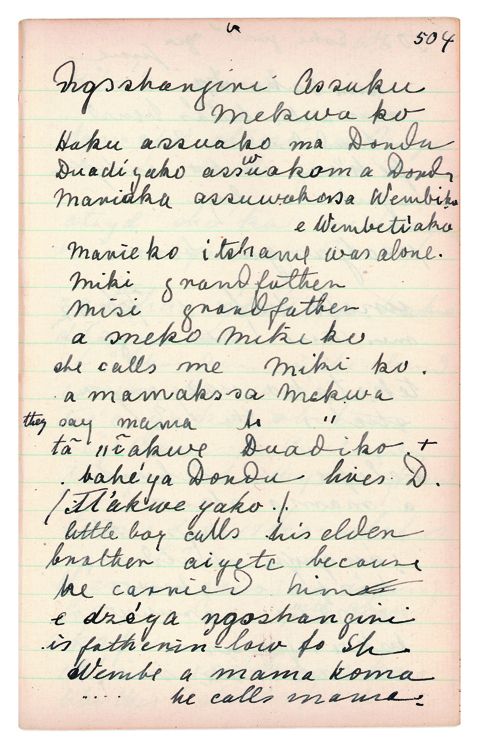 504
Ngsshangini Assuku
Mekwa ko
Haku assuako ma Dondu
Duadiyako assuakoma Dondu
Maniaka assuwakossa Wembiko
e Wembetiako
Manieko itshame was alone.
Miki grandfather
Misi grandfather
a meko Mike ko
she calls me Miki ko.
a mamakssa Mekwa
they say mama to "
Duadiko +
. bahéya Dondu lives D.
yako./
little boy calls his elder
brother aiyetc because
he carried him
e dzéga ngoshangini
is father in-law to Sh
Wembe a mama koma
.... he calls mama.